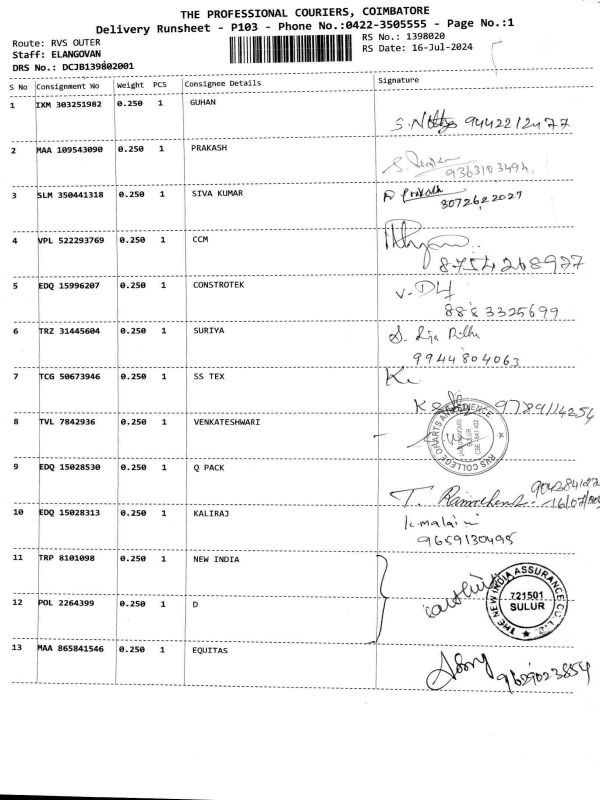 THE PROFESSIONAL COURIERS, COIMBATORE
Delivery Runsheet - P103 - Phone No.:0422-3505555 - Page No.:1
Route: RVS OUTER
RS No.: 1398020
Staff: ELANGOVAN
RS Date: 16-Jul-2024
DRS No.: DCJB139802001
S No Consignment No Weight PCS Consignee Details Signature
1 IXM 303251982 0.250 1 GUHAN
9442212477
2 MAA 109543090 0.250 1 PRAKASH
9363103494,
3 SLM 350441318 0.250 1 SIVA KUMAR
8072622027
4 VPL 522293769 0.250 1 CCM
8754268977
5 EDQ 15996207 0.250 1 CONSTROTEK
8883325699
6 TRZ 31445604 0.250 1 SURIYA
9944804063
7 TCG 50673946 0.250 1 SS TEX
9789114254
8 TVL 7842936 0.250 1 VENKATESHWARI
RVS COLLEGE OF ARTS AND SCIENCE
SULUR
9 EDQ 15028530 0.250 1 Q PACK
10 EDQ 15028313 0.250 1 KALIRAJ
9659130495
11 TRP 8101098 0.250 1 NEW INDIA
THE NEW INDIA ASSURANCE CO. LTD.
721501
SULUR
12 POL 2264399 0.250 1 D
13 MAA 865841546 0.250 1 EQUITAS
9629023854